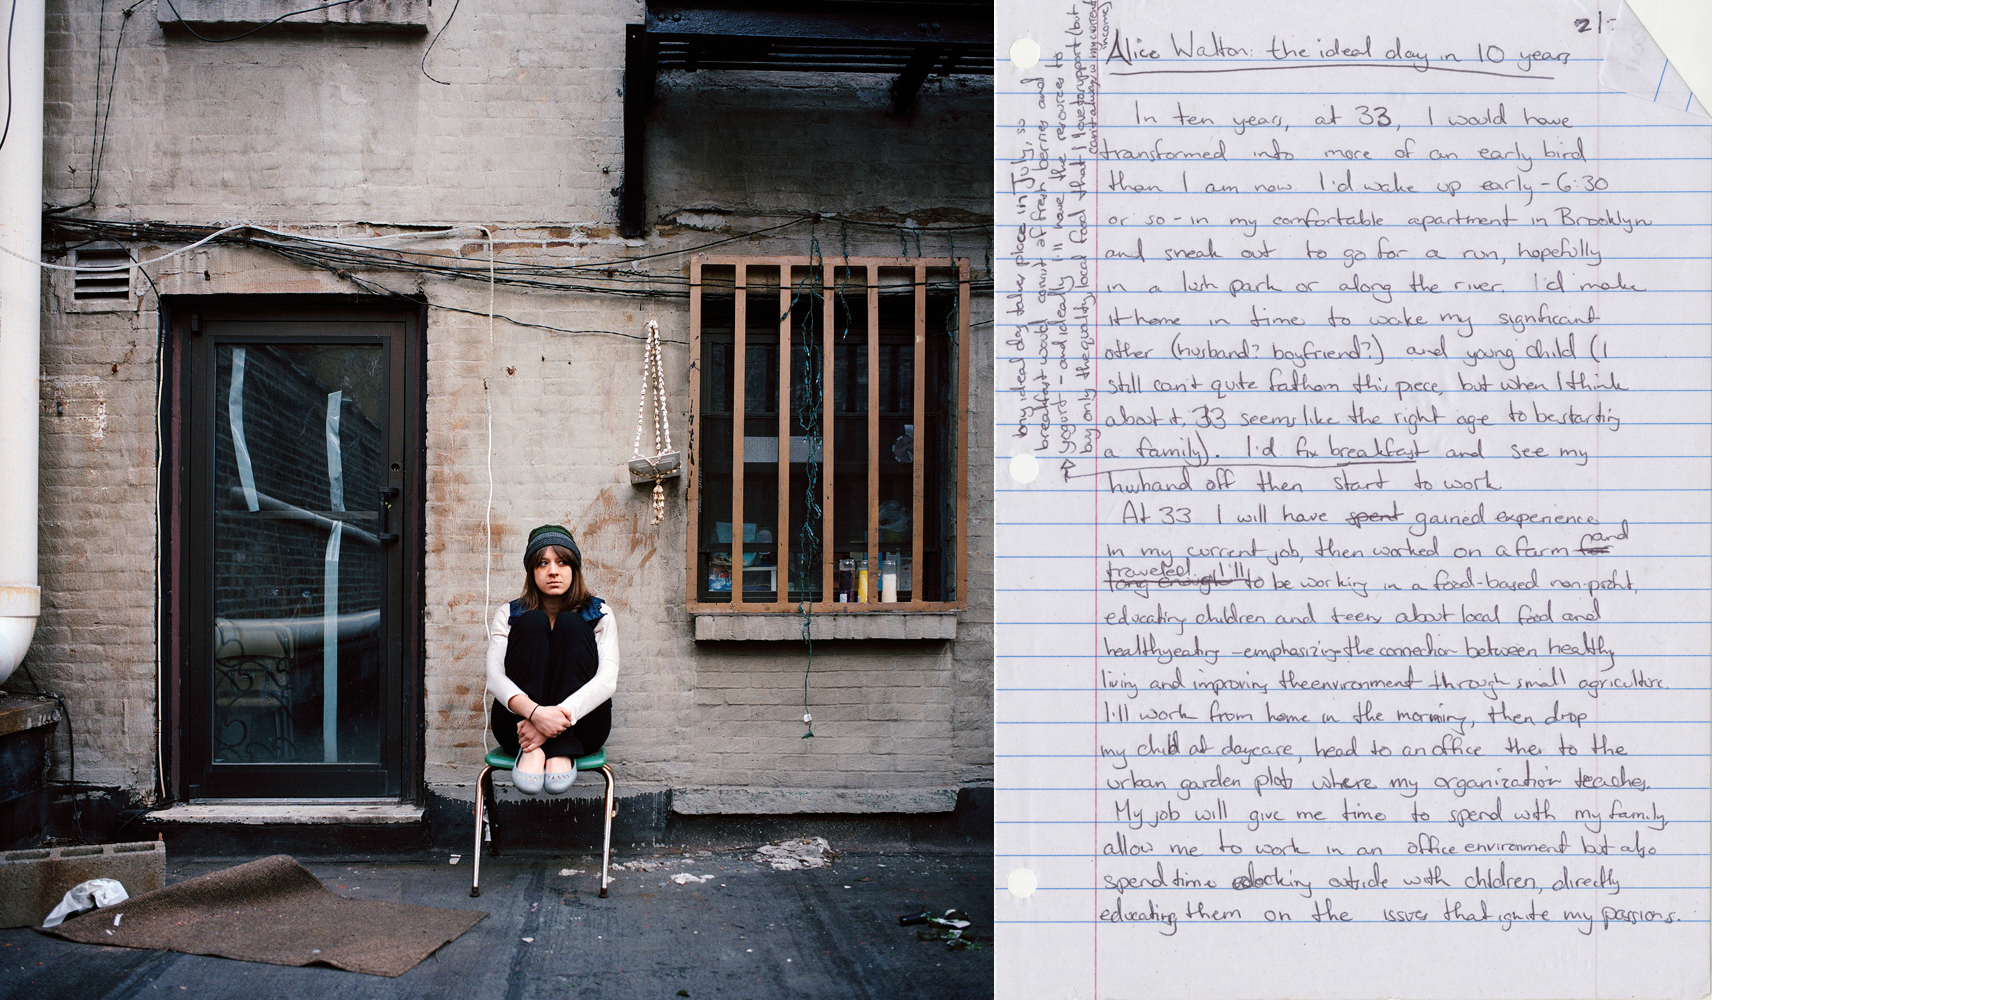 2/-
Alice Walton: the ideal day in 10 years
In ten years, at 33, I would have
transformed into more of an early bird
than I am now I'd wake up early - 6:30
or so - in my comfortable apartment in Brooklyn
and sneak out to go for a run, hopefully
in a lush park or along the river. I'd make
it home in time to wake my significant
other (husband? boyfriend?) and young child (I
still can't quite fathom this piece, but when I think
about it, 33 seems like the right age to be starting
a family). I'd fix breakfast and see my
husband off then start to work
At 33 I will have spent gained experience
in my current job, then worked on a farm and
traveled. I'll
long enough to be working in a food-based non-profit,
educating children and teens about local food and
healthy eating - emphasizing the connection between healthy
living and improving the environment through small agriculture.
I'll work from home in the morning, then drop
my child at daycare, head to an office then to the
urban garden plots where my organization teaches.
My job will give me time to spend with my family,
allow me to work in an office environment but also
spend time outside with children, directly
educating them on the issues that ignite my passions.
my ideal day takes place in July, so
breakfast would consist of fresh berries and
yogurt - and ideally I'll have the resources to
buy only the quality, local food that I love to support (but
can't always w my current
income)